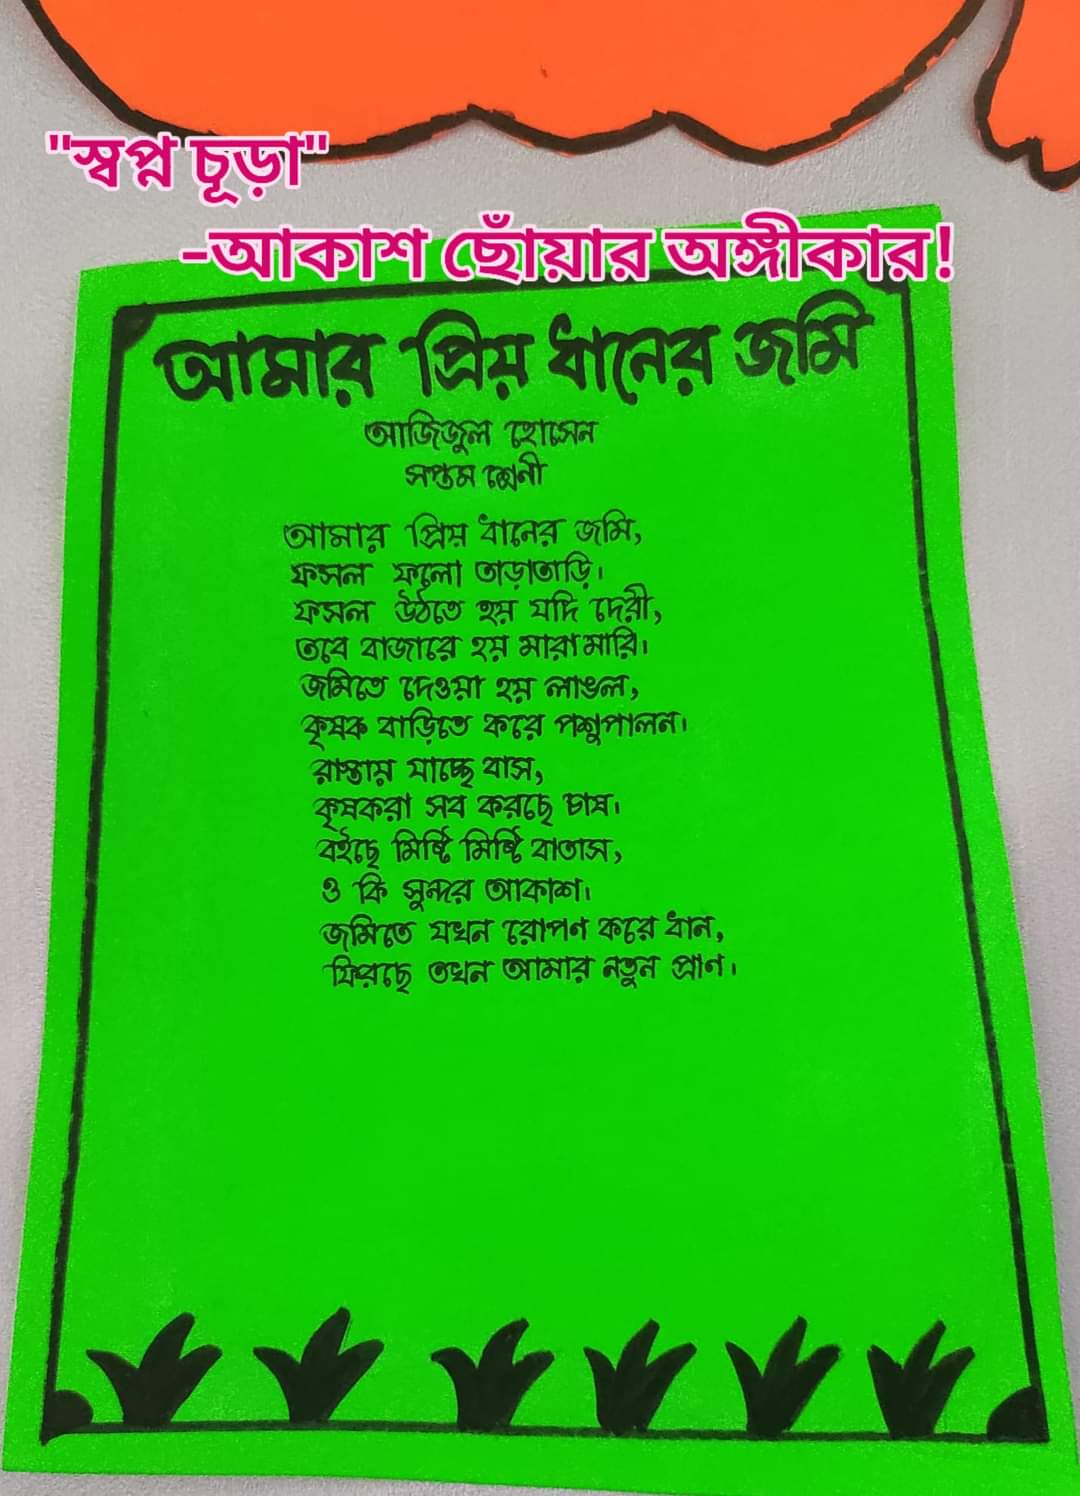 "স্বপ্ন চূড়া"
-আকাশ ছোঁয়ার অঙ্গীকার!
আমার প্রিয় ধানের জমি
আজিজুল হোসেন
সপ্তম শ্রেনী
আমার প্রিয় ধানের জমি,
ফসল ফলো তাড়াতাড়ি।
ফসল উঠতে হয় যদি দেরী,
তবে বাজারে হয় মারামারি।
জমিতে দেওয়া হয় লাঙল,
কৃষক বাড়িতে করে পশুপালন।
রাস্তায় যাচ্ছে বাস,
কৃষকরা সব করছে চাষ।
বইছে মিষ্টি মিষ্টি বাতাস,
ও কি সুন্দর আকাশ।
জমিতে যখন রোপণ করে ধান,
ফিরছে তখন আমার নতুন প্রাণ।